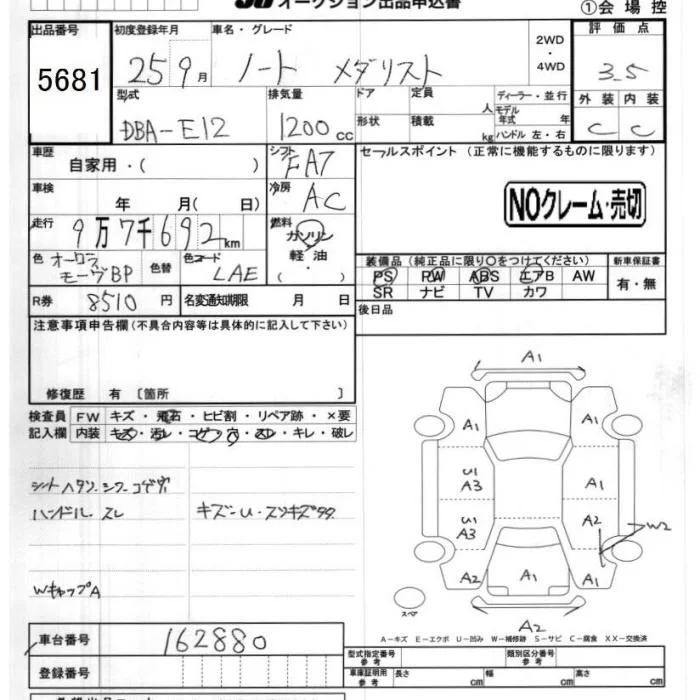 オークション出品申込書
①会場控
出品番号 初度登録年月 車名・グレード 2WD ・ 4WD 評価点
5681 25 9月 ノート メダリスト 3.5
型式 排気量 ドア 定員 人 ディーラー・並行 外装 内装
DBA-E12 1200cc 形状 積載 kg モデル年式 年 ハンドル 左・右 C C
車歴 自家用・( ) シフト FA7 セールスポイント (正常に機能するものに限ります)
車検 年 月( 日) 冷房 AC NOクレーム・売切
走行 9万7千692km 燃料 ガソリン 軽油 ( ・ )
色 オーロラモーヴBP 色替 色コード LAE 装備品 (純正品に限り〇をつけてください) 新車保証書
PS PW ABS エアB AW 有・無
SR ナビ TV カワ
R券 8510円 名変通知期限 月 日 後日品
注意事項申告欄(不具合内容等は具体的に記入して下さい)
修復歴 有 〔箇所 〕
検査員 FW キズ・飛石・ヒビ割・リペア跡・×要
記入欄 内装 キズ・汚レ・コゲ・穴・スレ・キレ・破レ
シートヘタリ.シワ.コゲ穴
ハンドル.スレ キズ-U.スリキズタタ
WキャップA
A1
A1 A1
U1 A3 A1
U1 A3 A2 W2
A2 A1 A1
スペア
A2
A-キズ E-エクボ U-凹み W-補修跡 S-サビ C-腐食 XX-交換済
車台番号 162880
型式指定番号 参考 類別区分番号 参考
登録番号 車庫証明用 参考 長さ cm 幅 cm 高さ cm